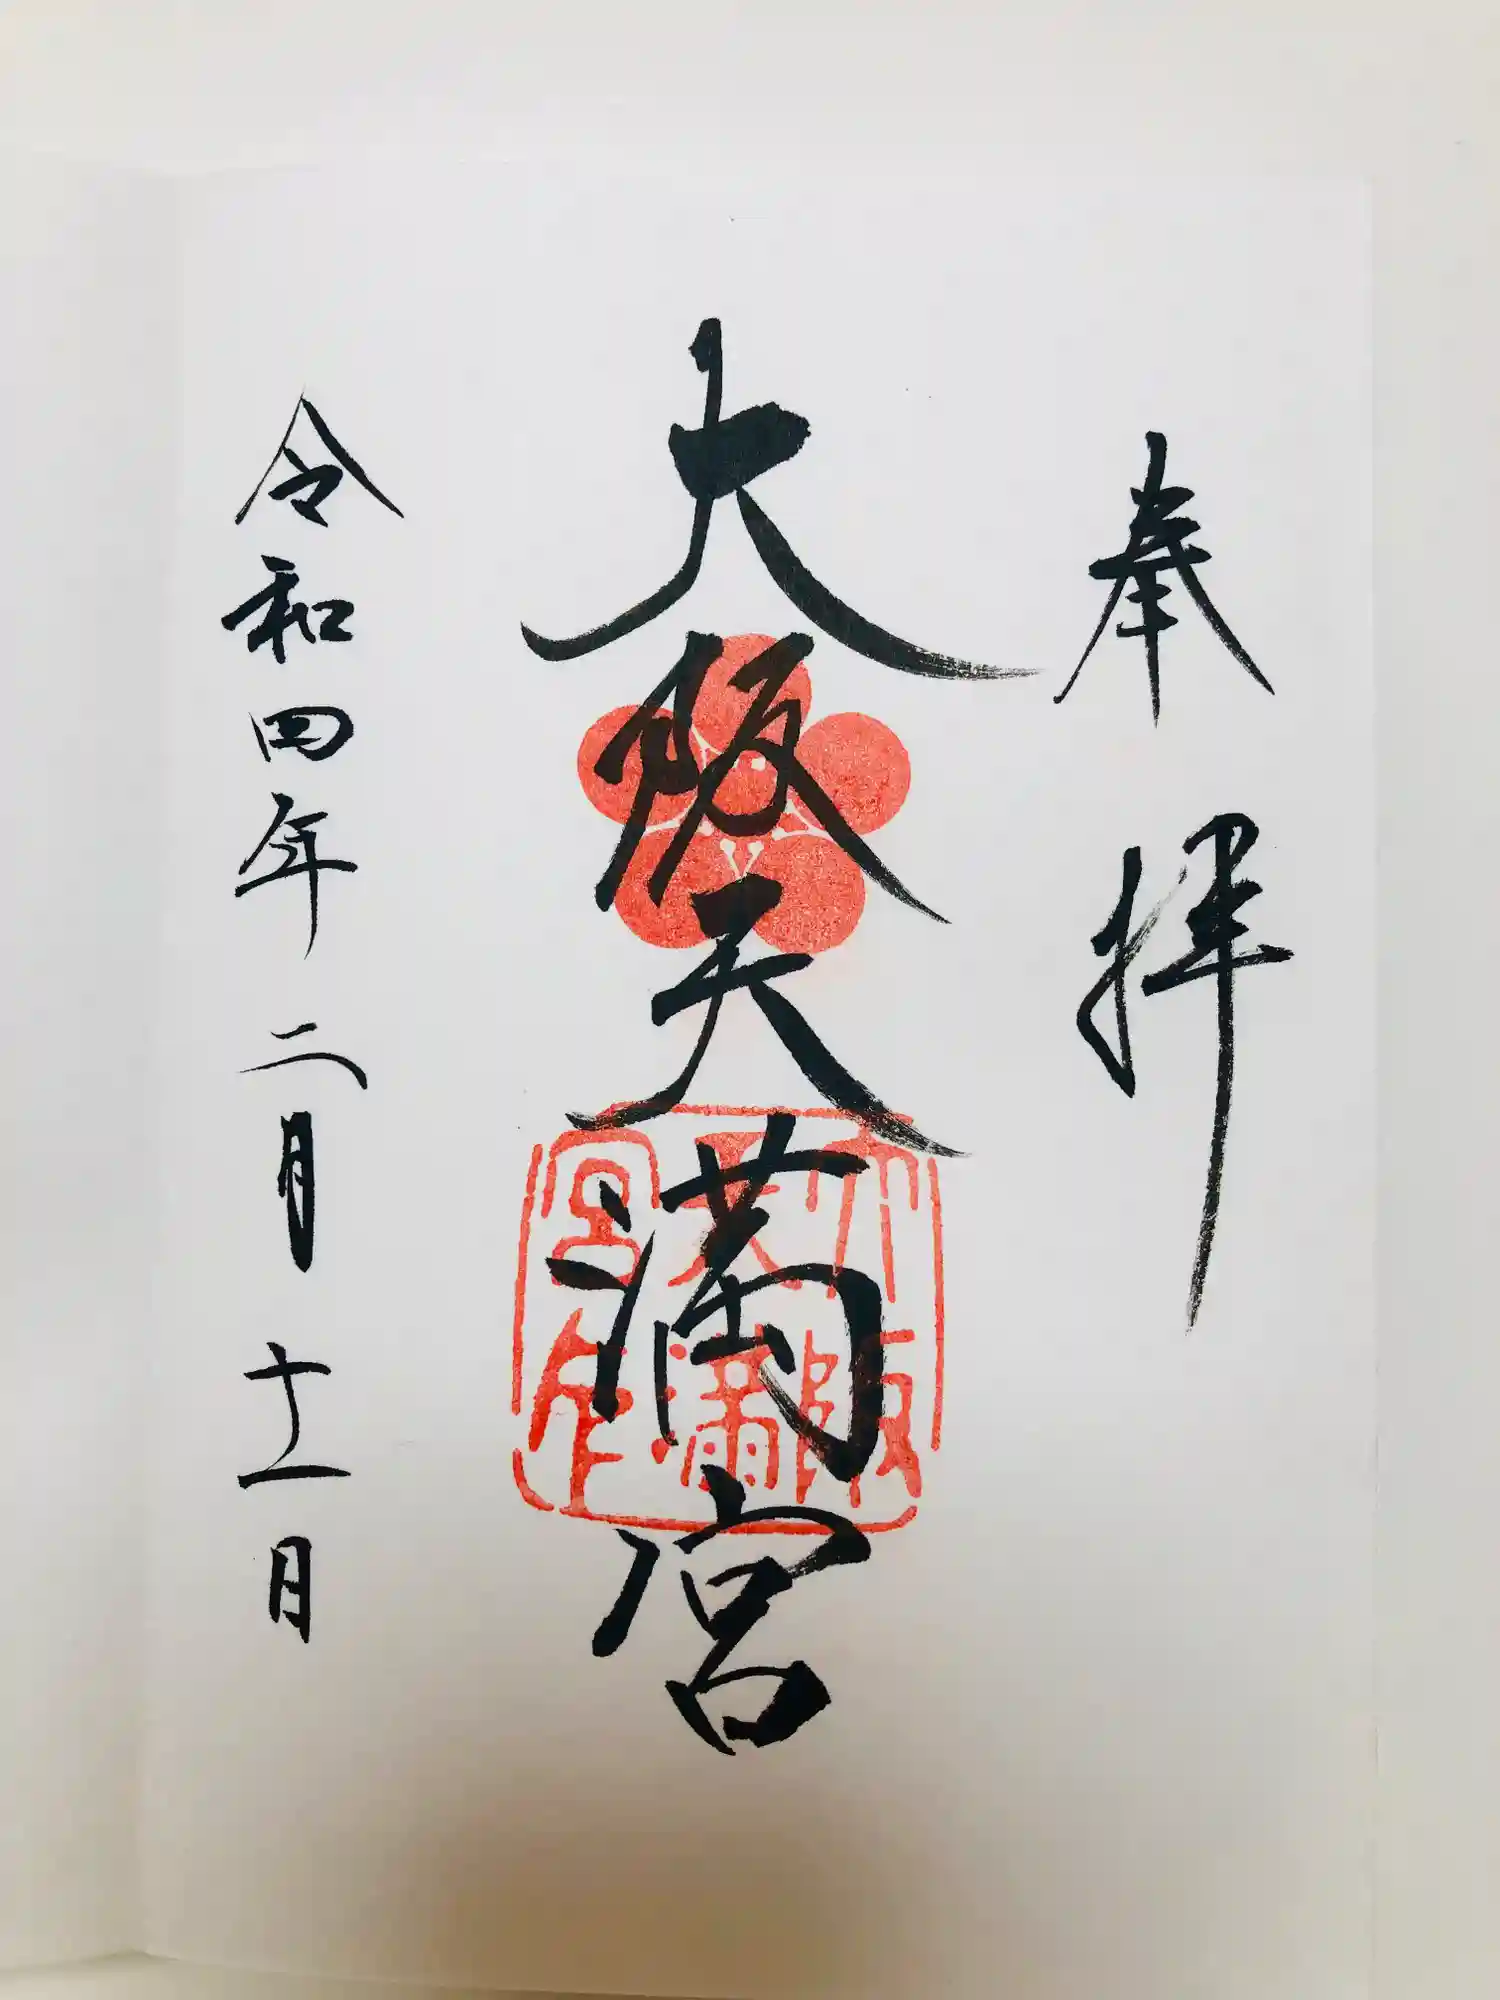 奉拝
大阪天満宮
大阪天満宮印
令和四年二月十一日